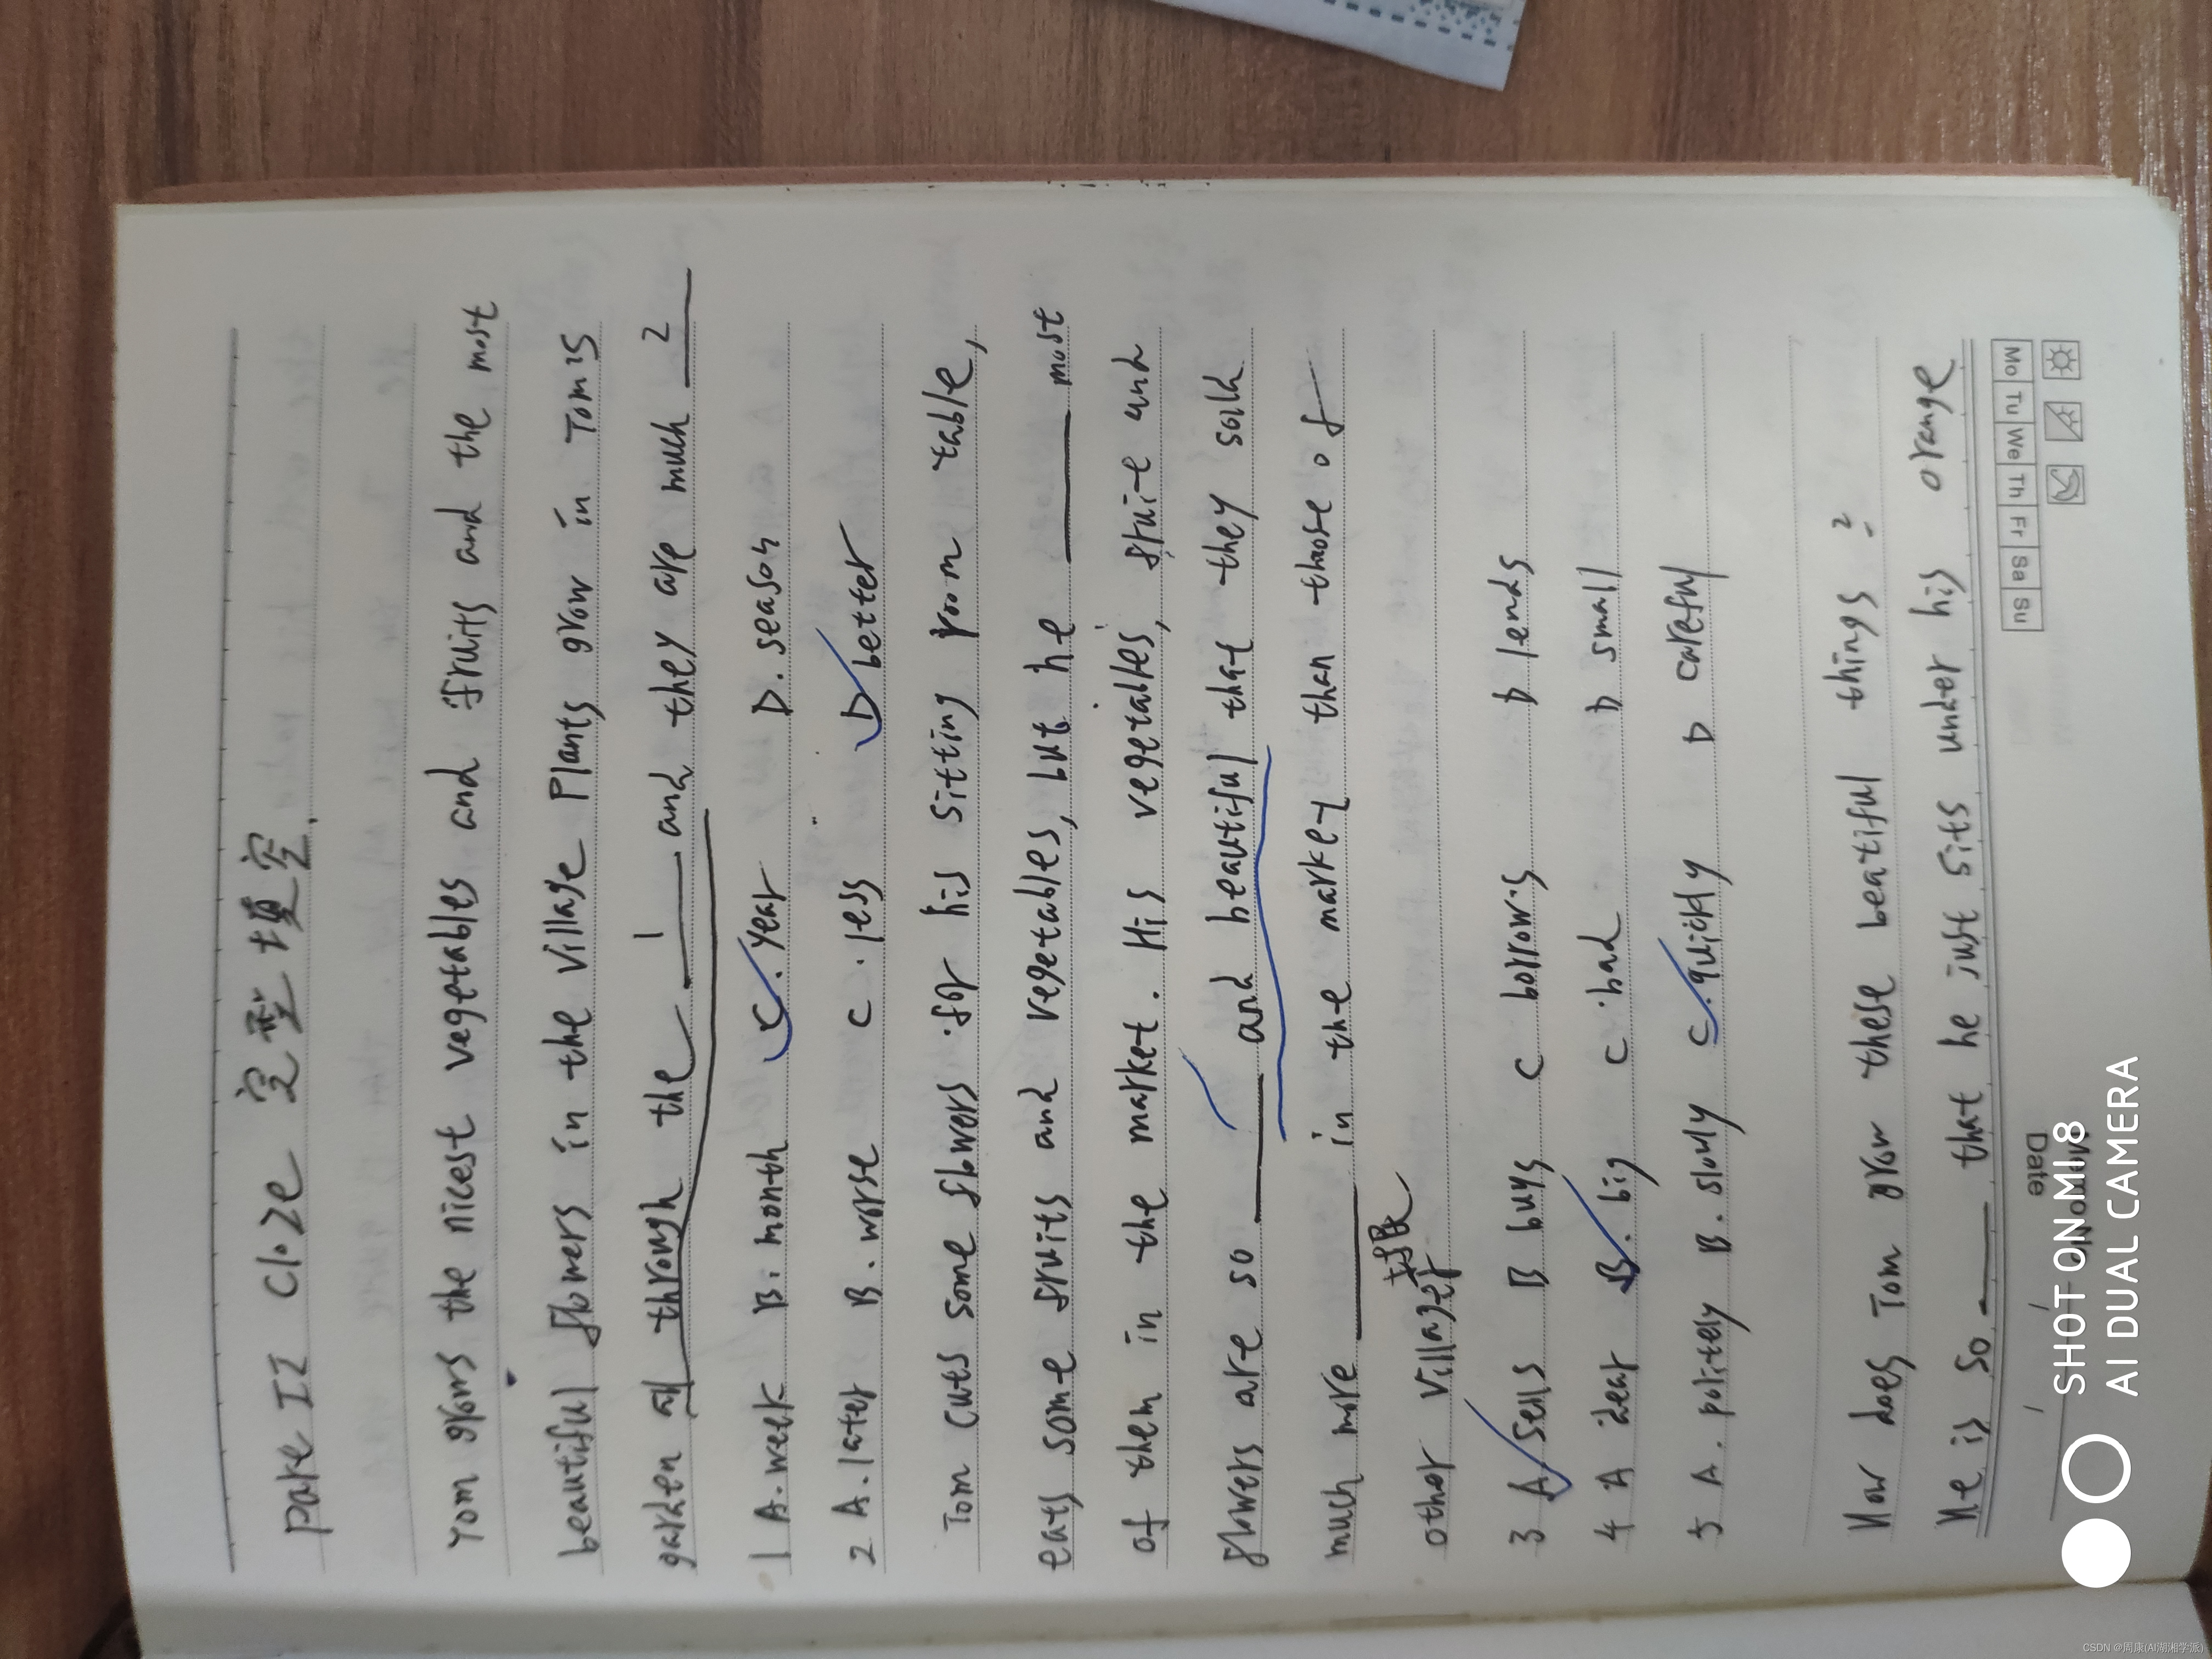 Part II Cloze 完型填空.
Tom grows the nicest vegetables and fruits and the most
beautiful flowers in the village Plants grow in Tom's
garden all through the 1 and they are much 2
1 A. week B. month C. year D. season
2 A. later B. worse C. less D better
Tom cuts some flowers for his sitting room table,
eats some fruits and vegetables, but he most
of them in the market. His vegetables, fruite and
flowers are so and beautiful that they solh
much more in the market than those of
other villager
3 A sells B buys C borrows D lends
4 A dear B. big C. bad D small
5 A. politely B. slowly C. quickly D careful
How does Tom grow these beatiful things?
He is so that he just sits under his orange
Memo No.
Date / /
Mo Tu We Th Fr Sa Su
SHOT ON MI 8
AI DUAL CAMERA
CSDN @周康(AI湖湘学派)